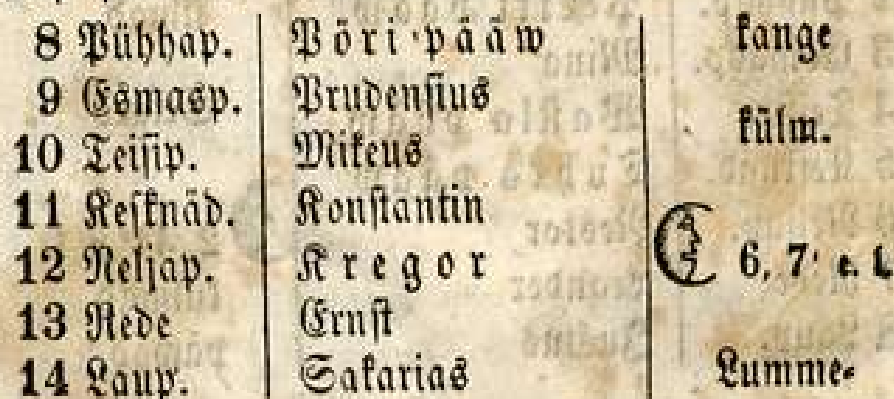 8 Pühhap. Pöri-pääw kange
9 Esmasp. Prudensius
külm.
10 Teisip. Mikeus
11 Kesknäd. Konstantin
12 Neljap. Kregor 6, 7' e. l.
13 Rede Ernst
14 Laup. Sakarias Lumme-